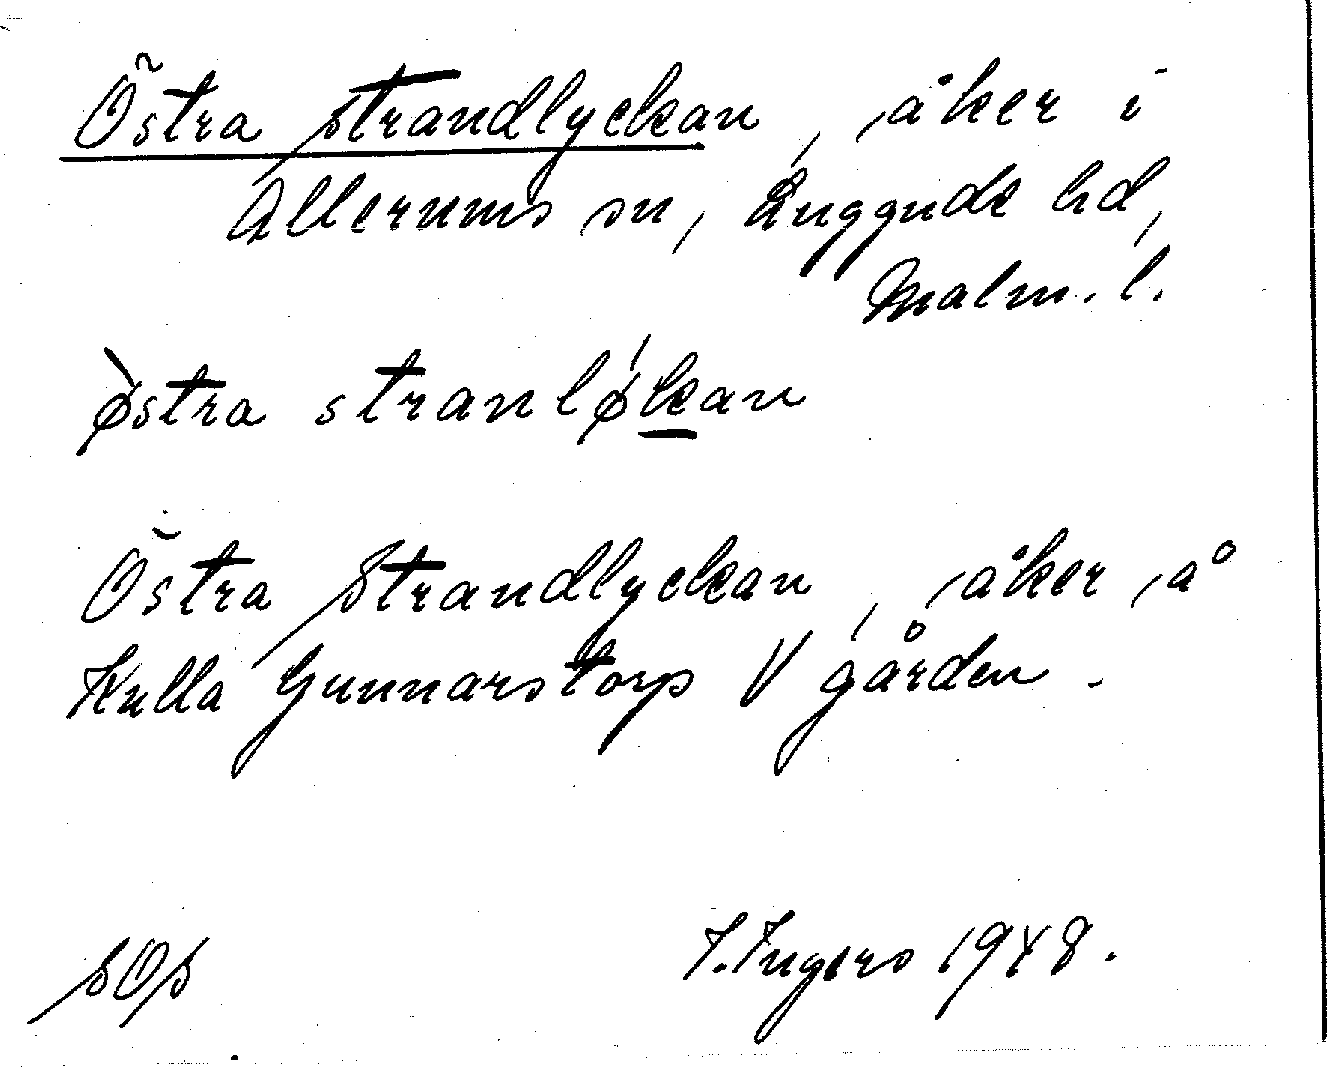 Östra Strandlyckan, åker i
Allerums sn, Luggude hd,
Malm. l.
østra stranløkan
Östra Strandlyckan, åker å
Kulla Gunnarstorp V gården.
I. Ingers 1948.